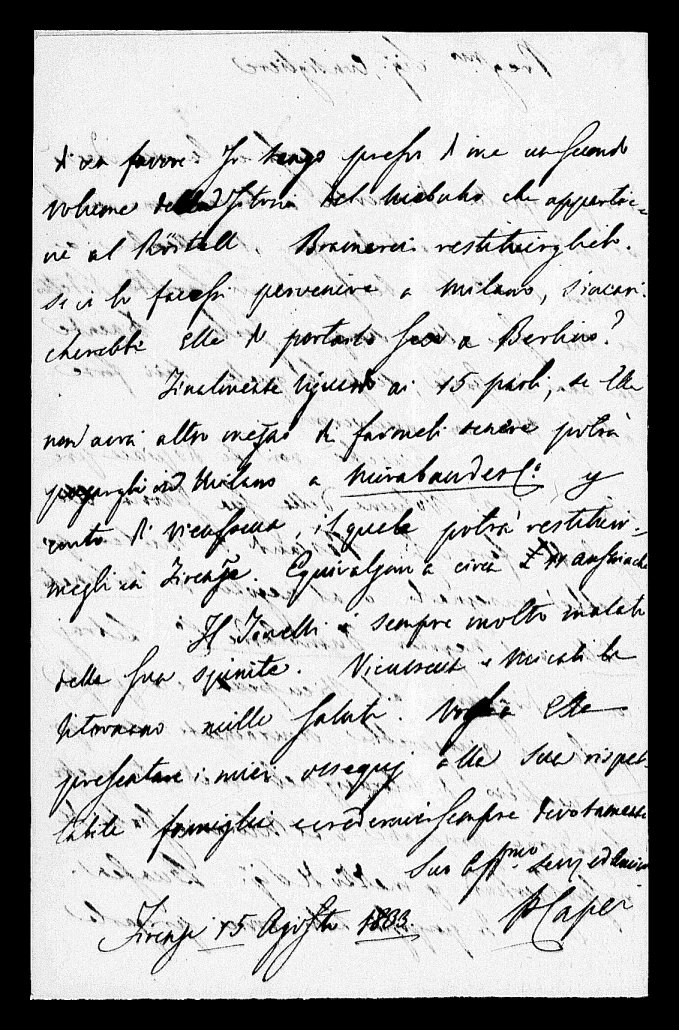 di un favore. Io tengo presso di me un secondo
volume della Istoria del Niebuhr che appartie-
ne al Röstell. Bramerei restituirglielo.
se io lo facessi pervenire a Milano, s'incari-
cherebbe Ella di portarlo seco a Berlino?
Finalmente riguardo ai 15 paoli, se Ella
non avrà altro mezzo di farmeli tenere potrà
pagargli in Milano a Mirabaud e Co. p
conto di Vieusseux, il quale potrà restituir-
megli in Firenze. Equivalgono a circa £ austriache
Il Tonelli è sempre molto malato
della sua spinite. Vieusseux e Micali la
ritornano mille saluti. Voglia Ella
presentare i miei ossequj alla sua rispet-
tabile famiglia e credermi sempre devotamente
Suo Affmo. serv. ed amico
P Capei
Firenze 15 Agosto 1833.